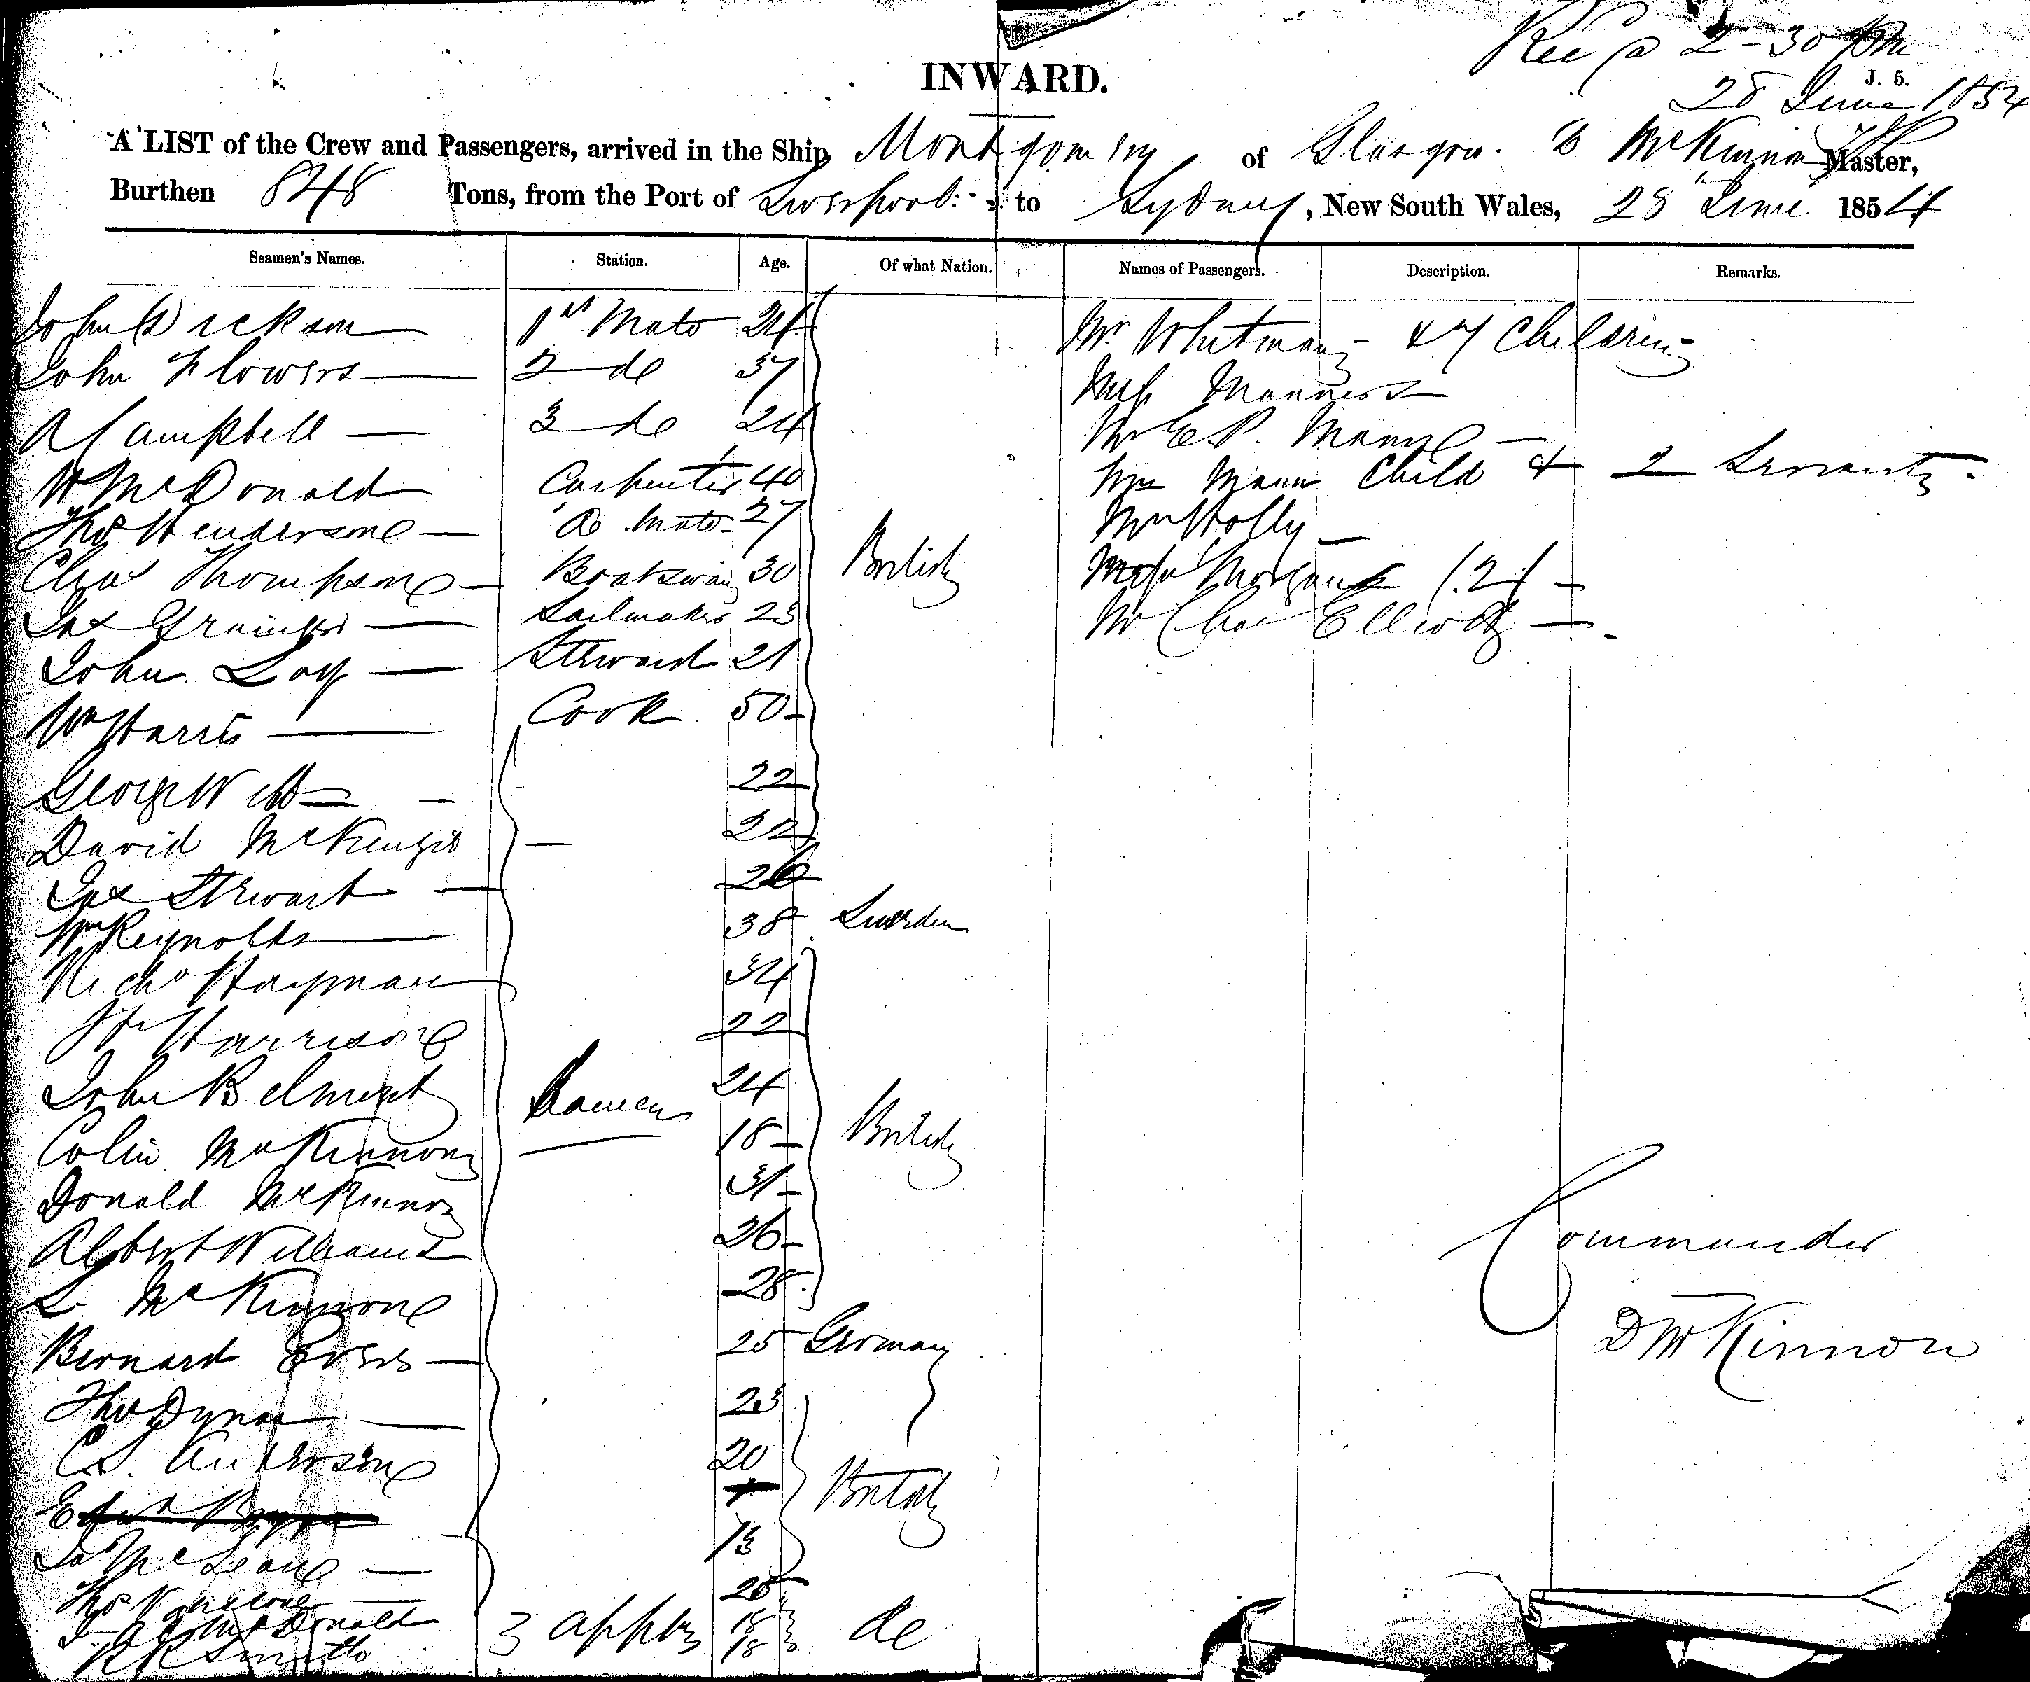 Rec @ 2-30 PM
J. 5.
28 June 1854
INWARD.
A LIST of the Crew and Passengers, arrived in the Ship Montgomery of Glasgow. D McKinnon Master,
Burthen 848 Tons, from the Port of Liverpool to Sydney, New South Wales, 28 June 1854
Seamen's Names. Station. Age. Of what Nation. Names of Passengers. Description. Remarks.
John Dickson 1st Mate 24 Mr Whitman & 7 Children
John Flowers 2 do 37 Miss Manners
A Campbell 3 do 24 Mr E. P. Mann
W McDonald Carpenter 40 Mrs Mann Child & 2 Servants
Thos Henderson Do Mate 27 Mrs Holly
Chas Thompson Boatswain 30 British Morgan (2)
Jas Grainger Sailmaker 23 Mr Chas Elliott
John Loy Steward 21
Wm Harris Cook 50
George Webb 22
David McKenzie 22
Jas Stewart 26
Wm Reynolds 38 Sweden
Richd Hayman 34
Harrison 22
John Belmont Seamen 24
Colin McKinnon 18 British
Donald McKinnon 31
Albert Williams 26 Commander
L McKinnon 28
Bernard Evers 25 German D McKinnon
Thos Dynes 23
C S. Anderson 20
British
McLean 13
Thos 20
McDonald 18
R R Smith 3 appren 18 do